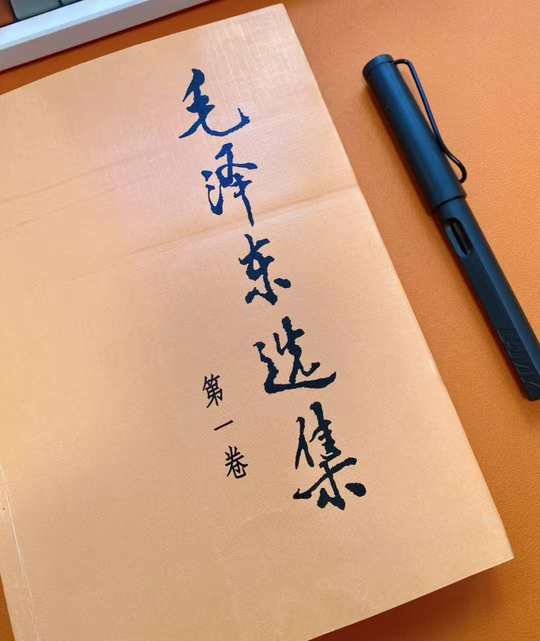 毛泽东选集
第一卷
LAMY